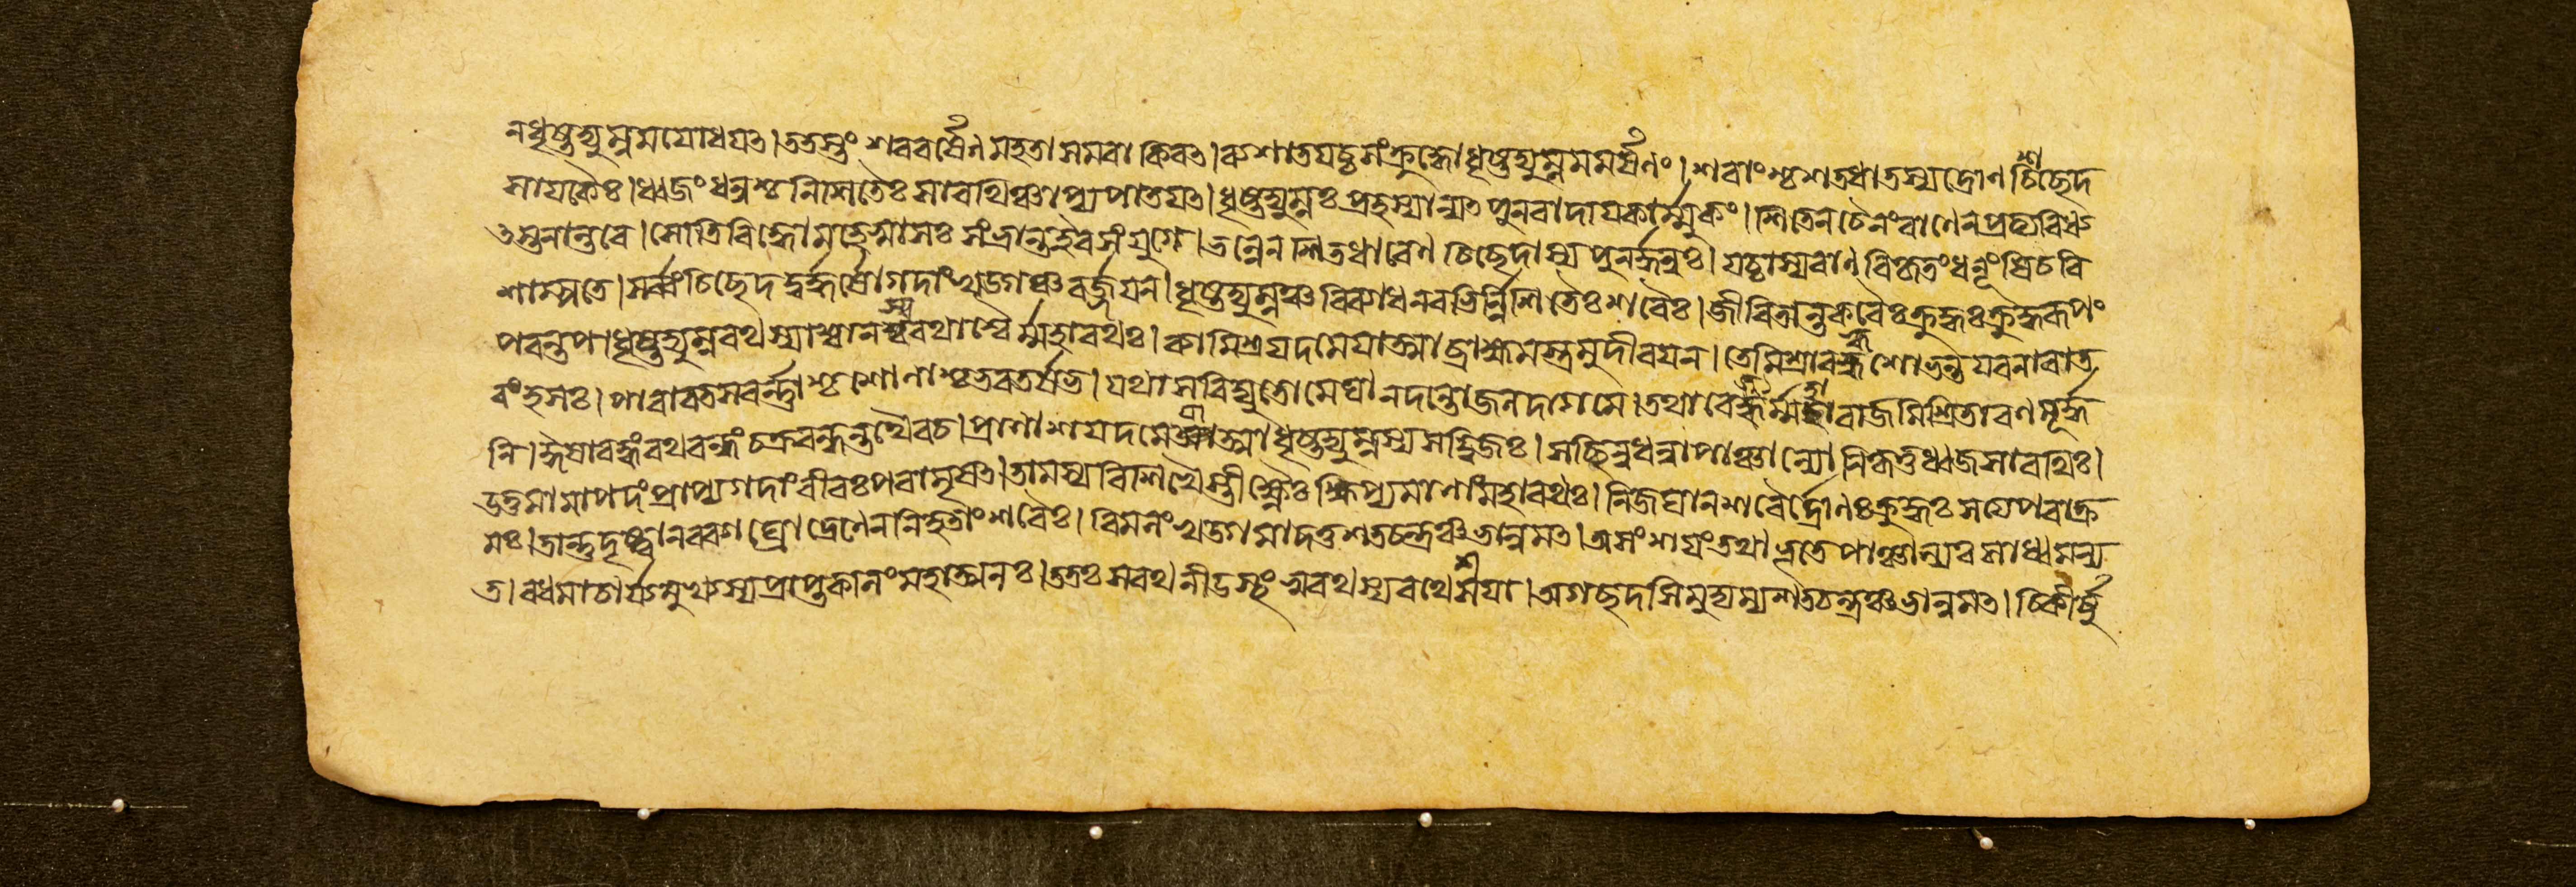 নধৃষ্টদ্যুম্নমযোধযৎ।ততস্তং শরবর্ষেণ মহতা সমবাকিরৎ। ব্যশাতযচ্চ সংক্রুদ্ধো ধৃষ্টদ্যুম্নমমর্ষণং। শরাংশ্চ শতধা তস্য দ্রোণশ্চিছেদ
সাযকৈঃ। ধ্বজং ধনুশ্চ নিশিতৈঃ সারথিঞ্চাপ্যপাতযৎ। ধৃষ্টদ্যুম্নঃ প্রহস্যান্যৎ পুনরাদায কার্ম্মুকং। শিতেন চৈনং বাণেন প্রত্যবিধ্য
ৎ স্তনান্তরে। সোতিবিদ্ধো মহেষ্বাসঃ সংভ্রান্ত ইব সংযুগে। ভল্লেন শিতধারেণ চিছেদাস্য পুনর্দ্ধনুঃ। যচ্চাস্য বাণ বিকৃতং ধনূংষি চ বি
শাম্পতে। সর্ব্বং চিছেদ দুর্দ্ধর্ষো গদাং খড্গঞ্চ বর্জ্জযন্। ধৃষ্টদ্যুম্নঞ্চ বিব্যাধ নবভির্ন্নিশিতৈঃ শরৈঃ। জীবিতান্তকরৈঃ ক্রুদ্ধঃ ক্রুদ্ধরূপং
পরন্তপ। ধৃষ্টদ্যুম্নরথস্যাশ্বান্ স্বরথাশ্বৈর্ম্মহারথঃ। ব্যামিশ্রযদমেযাত্মা ব্রাহ্মমস্ত্রমুদীরযন্। তে মিশ্রা বহ্বশোভন্ত যবনা বাত
রংহসঃ। পারাবতসবর্ণ্ণাশ্চ শোণাশ্চ ভরতর্ষভ। যথা সবিদ্যুতো মেঘা নদন্তো জলদাগমে। তথা রেজুর্ম্মহারাজ মিশ্রিতা রণমূর্দ্ধ
নি। ঈষাবন্ধং রথবন্ধং চক্রবন্ধন্তথৈব চ। প্রণাশযদমেযাত্মা ধৃষ্টদ্যুম্নস্য স দ্বিজঃ। স ছিন্নধন্বা পাঞ্চাল্যো নিকৃত্তধ্বজসারথিঃ।
উত্তমামাপদং প্রাপ্য গদাং বীরঃ পরামৃষৎ। তামস্য বিশিখৈস্তীক্ষ্ণৈঃ ক্ষিপ্যমাণাং মহারথঃ। নিজঘান শরৈর্দ্রোণঃ ক্রুদ্ধঃ সত্যপরাক্র
মঃ। তান্তু দৃষ্ট্বা নরব্যাঘ্রো দ্রোণেন নিহতাং শরৈঃ। বিমলং খড্গমাদত্ত শতচন্দ্রঞ্চ ভানুমৎ। অসংশযং তথাভূতে পাঞ্চাল্যঃ সাধ্বমন্য
ত। বধমাচার্য্যমুখ্যস্য প্রাপ্তকালং মহাত্মনঃ। ততঃ স রথনীডস্থং স্বরথস্য রথেষযা। অগছদসিমুদ্যম্য শতচন্দ্রঞ্চ ভানুমৎ। চিকীর্ষু